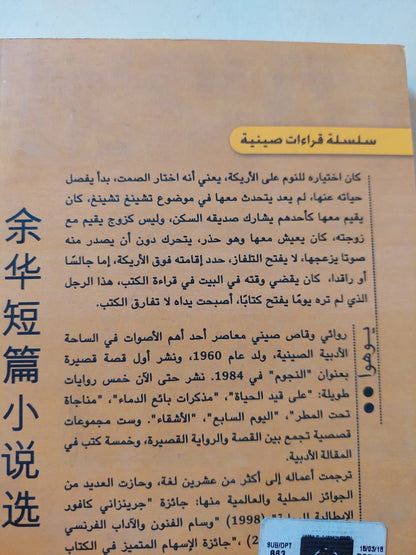 سلسلة قراءات صينية
كان اختياره للنوم على الأريكة، يعني أنه اختار الصمت، بدأ يفصل
حياته عنها، لم يعد يتحدث معها في موضوع تشينغ تشينغ، كان
يقيم معها كأحدهم يشارك صديقه السكن، وليس كزوج يقيم مع
زوجته، كان يعيش معها وهو حذر، يتحرك دون أن يصدر منه
صوتا يزعجها، لا يفتح التلفاز، حدد إقامته فوق الأريكة، إما جالسًا
أو راقدا، كان يقضي وقته في البيت في قراءة الكتب، هذا الرجل
الذي لم تره يومًا يفتح كتابًا، أصبحت يداه لا تفارق الكتب.
يوهوا
روائي وقاص صيني معاصر أحد أهم الأصوات في الساحة
الأدبية الصينية، ولد عام 1960، ونشر أول قصة قصيرة
بعنوان "النجوم" في 1984. نشر حتى الآن خمس روايات
طويلة: "على قيد الحياة"، "مذكرات بائع الدماء"، "مناجاة
تحت المطر"، "اليوم السابع"، "الأشقاء". وست مجموعات
قصصية تجمع بين القصة والرواية القصيرة، وخمسة كتب في
المقالة الأدبية.
ترجمت أعماله إلى أكثر من عشرين لغة، وحازت العديد من
الجوائز المحلية والعالمية منها: جائزة "جرينزاني كافور
(1998) "وسام الفنون والآداب الفرنسي
، "جائزة الإسهام المتميز في الكتاب
余华短篇小说选
SUB/DPT
863
15/03/16